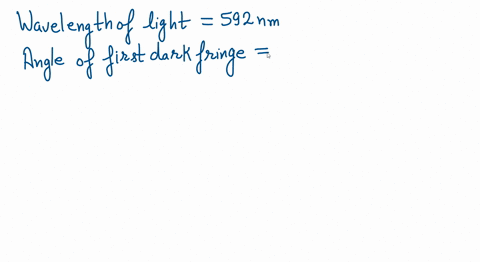 Wavelength of light = 592 nm
Angle of first dark fringe =